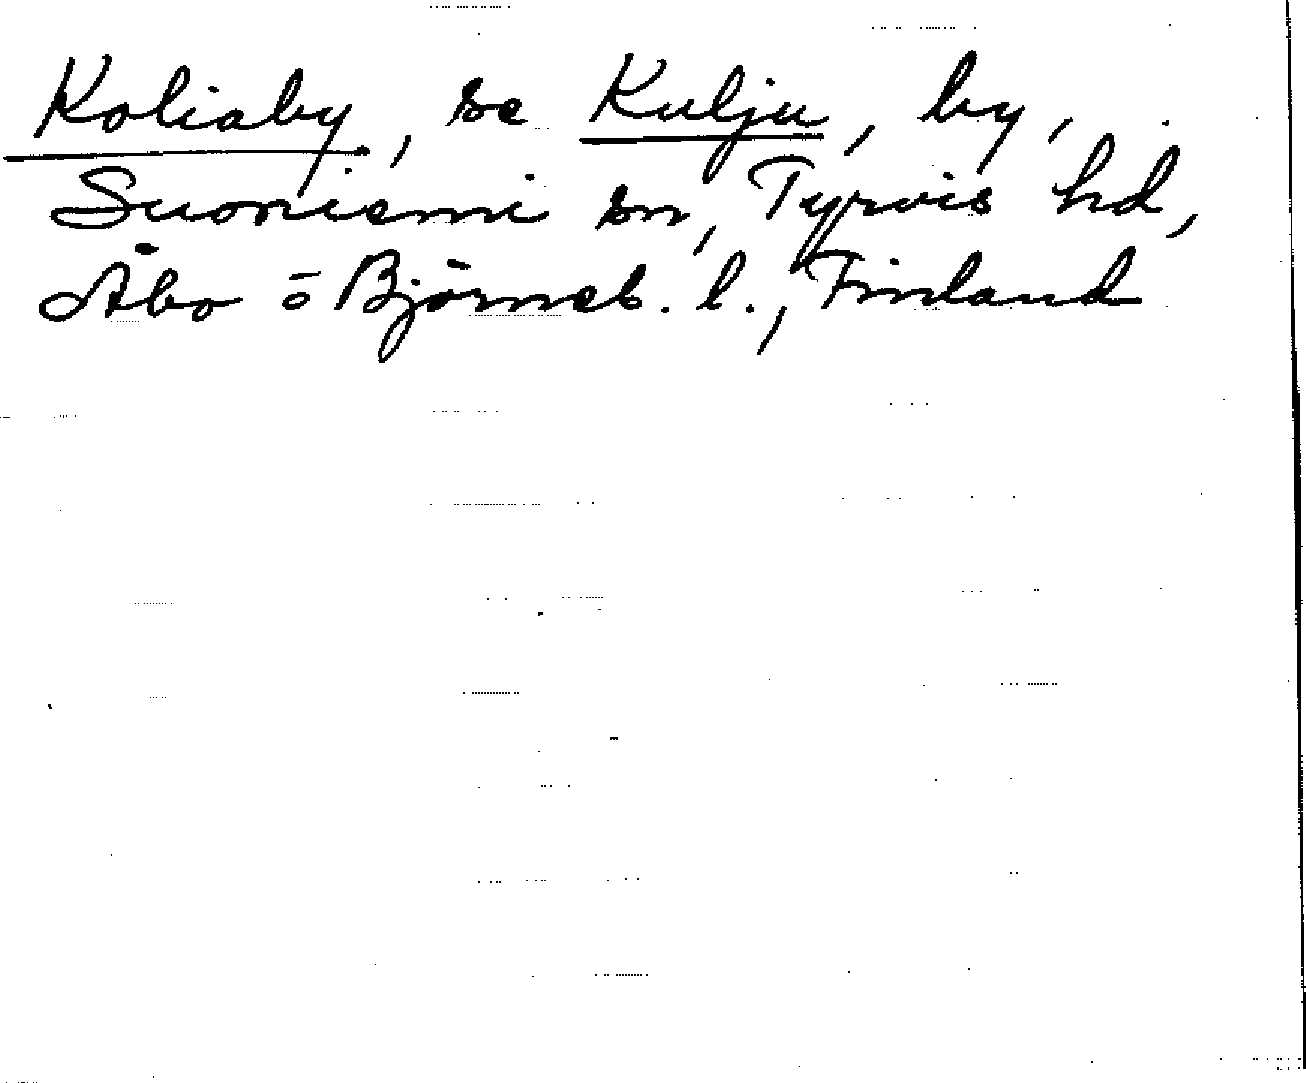 Koliaby, se Kulju, by,
Suoniemi sn, Tyrvis hd,
Åbo o Björneb. l., Finland